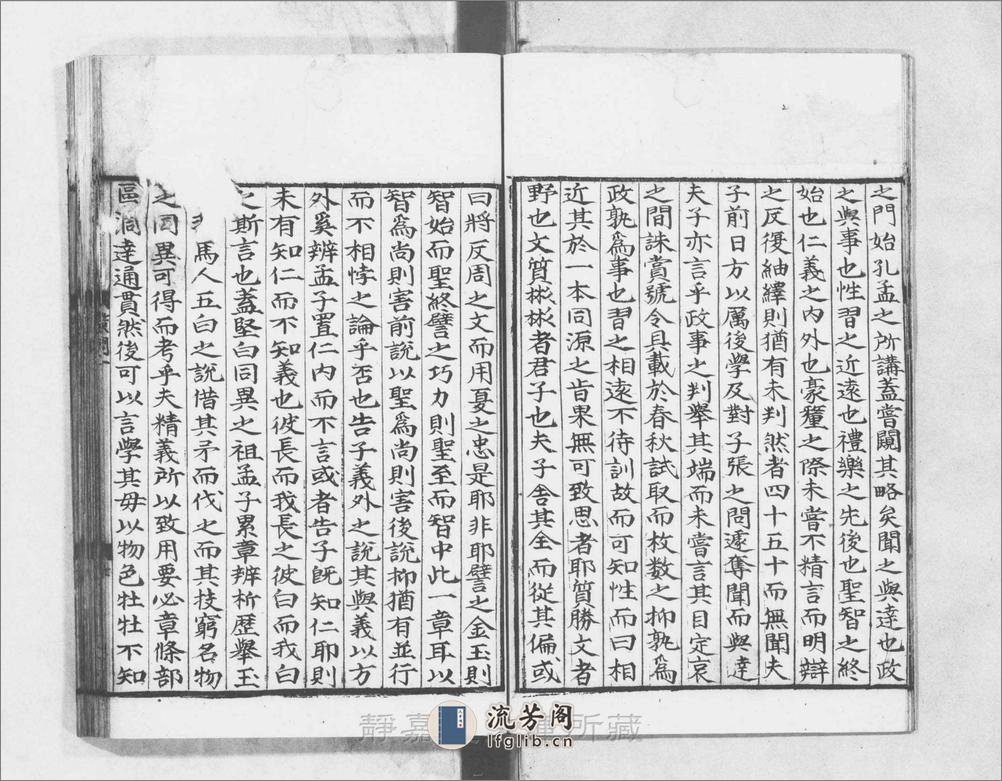 之門始孔孟之所講蓋嘗闚其略矣聞之與達也政
之與事也性習之近遠也禮樂之先後也聖智之終
始也仁義之內外也豪釐之際未嘗不精言而明辯
之反復紬繹則猶有未判然者四十五十而無聞夫
子前日方以厲後學及對子張之問遽奪聞而與達
夫子亦言乎政事之判舉其端而未嘗言其目定哀
之間誅賞號令具載於春秋試取而枚數之抑孰為
政孰為事也習之相遠不待訓故而可知性而曰相
近其於一本同源之旨果無可致思者耶質勝文者
野也文質彬彬者君子也夫子舍其全而從其偏或
曰將反周之文而用夏之忠是耶非耶譬之金玉則
智始而聖終譬之巧力則聖至而智中此一章耳以
智為尚則害前說以聖為尚則害後說抑猶有並行
而不相悖之論乎否也告子義外之說其與義以方
外奚辨孟子置仁內而不言或者告子既知仁耶則
未有知仁而不知義也彼長而我長之彼白而我白
之斯言也蓋堅白同異之祖孟子累章辨析歷舉玉
馬人五白之說借其矛而伐之而其技窮名物
之同異可得而考乎夫精義所以致用要必章條部
區洞達通貫然後可以言學其毋以物色牡牝不知
靜嘉堂文庫所藏
流芳阁
lfglib.cn